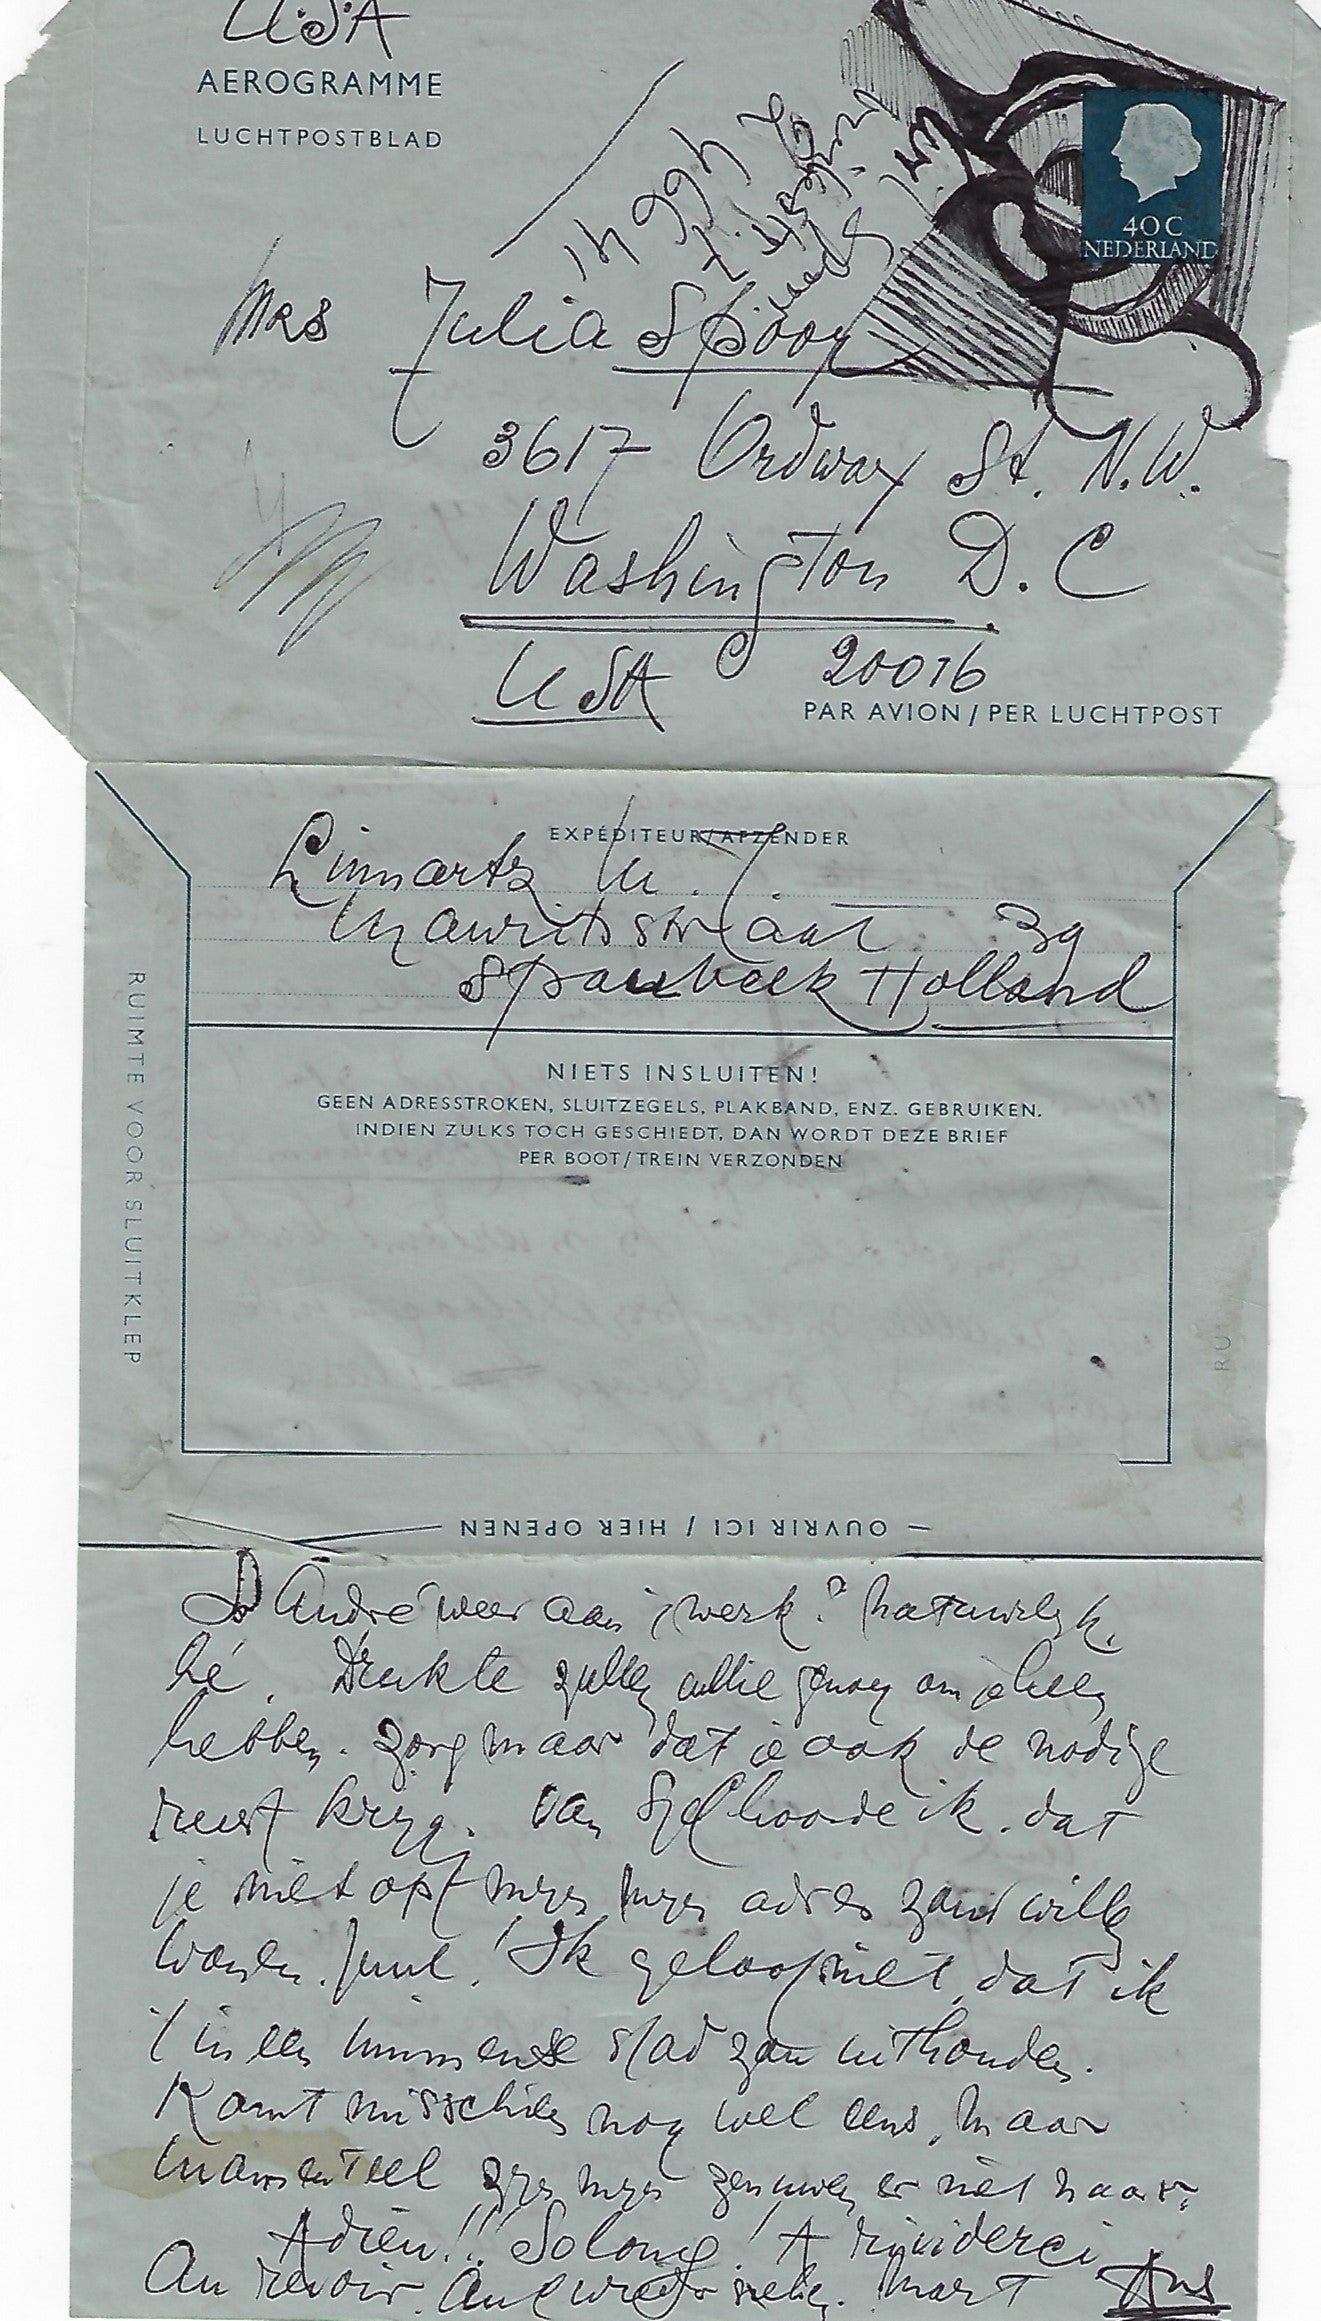 USA
AEROGRAMME
LUCHTPOSTBLAD
40 C
NEDERLAND
Mrs Julia Spooy
3617 Ordway St. N.W.
Washington D.C
USA 20016
PAR AVION / PER LUCHTPOST
EXPÉDITEUR/AFZENDER
Linnartz M. J.
Mauritsstraat 39
Spaubeek Holland
NIETS INSLUITEN!
GEEN ADRESSTROKEN, SLUITZEGELS, PLAKBAND, ENZ. GEBRUIKEN.
INDIEN ZULKS TOCH GESCHIEDT, DAN WORDT DEZE BRIEF
PER BOOT/TREIN VERZONDEN
RUIMTE VOOR SLUITKLEP
RUI
— OUVRIR ICI / HIER OPENEN —
André weer aan 't werk? Natuurlijk,
hé. Drukte zullen jullie genoeg om je heen
hebben. Zorg maar dat je ook de nodige
rust krijg. Van hoorde ik. dat
je niet op mijn adres zoud willen
wonen. Juul! Ik geloof niet, dat ik
't in een immense stad zou uithouden.
Komt misschien nog wel eens, maar
momenteel zijn mijn zenuwen er niet naar.
Adieu!! So long! A rividerci
Au revoir. Mart Ans